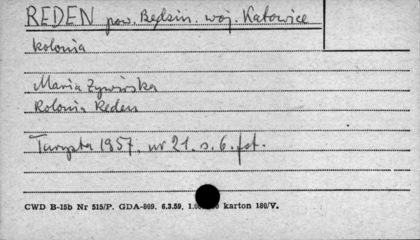 REDEN pow. Będzin. woj. Katowice
kolonia
Maria Żywirska
Kolonia Reden
Turysta 1957. nr 21. s. 6. fot.
CWD B-15b Nr 515/P. GDA-609. 6.3.59. karton 180/V.